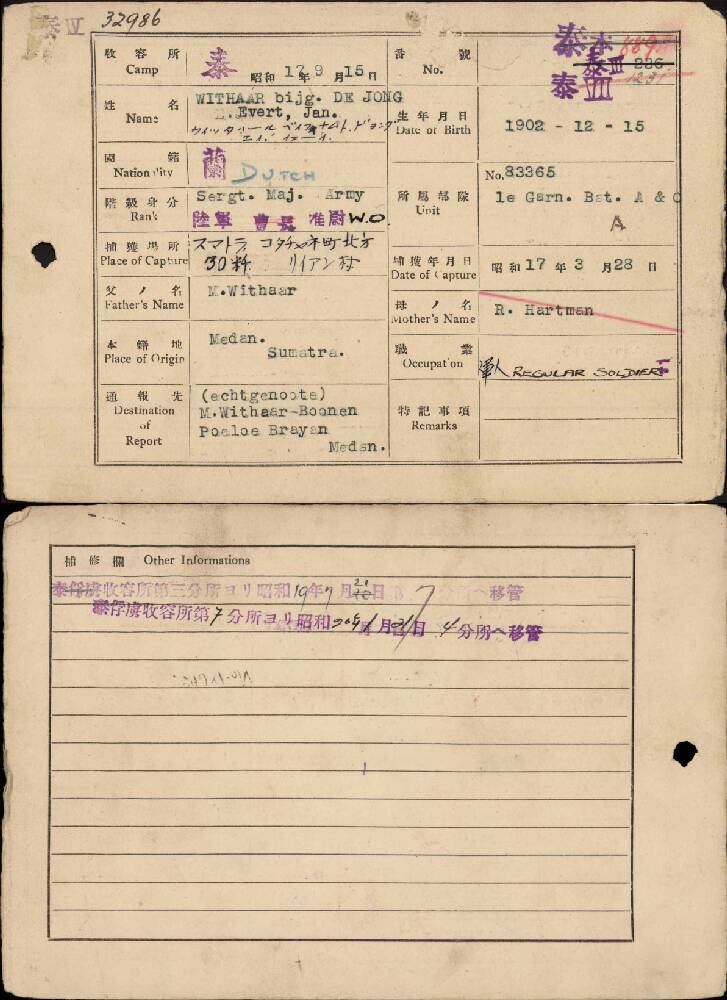 泰 Ⅳ 32986
收容所 Camp 泰 昭和 17 年 9 月 15 日
番號 No. 泰本 泰Ⅲ 236 泰Ⅲ 1231
姓名 Name WITHAAR bijg. DE JONG
Evert, Jan.
生年月日 Date of Birth 1902 - 12 - 15
國籍 Nationality 蘭 DUTCH
No. 83365
階級身分 Rank Sergt. Maj. Army
陸軍 曹長 准尉 W.O.
所屬部隊 Unit 1e Garn. Bat. A & O
A
捕獲場所 Place of Capture スマトラ コタチャネ町北方
30粁 リイアン村
捕獲年月日 Date of Capture 昭和 17 年 3 月 28 日
父ノ名 Father's Name M.Withaar
母ノ名 Mother's Name R. Hartman
本籍地 Place of Origin Medan.
Sumatra.
職業 Occupation 軍人 REGULAR SOLDIER
通報先 Destination of Report (echtgenoote)
M.Withaar-Boonen
Poeloe Brayan
Medan.
特記事項 Remarks
補修欄 Other Informations
泰俘虜收容所第三分所ヨリ昭和19年7月21日第7分所ヘ移管
泰俘虜收容所第7分所ヨリ昭和20年1月21日4分所ヘ移管